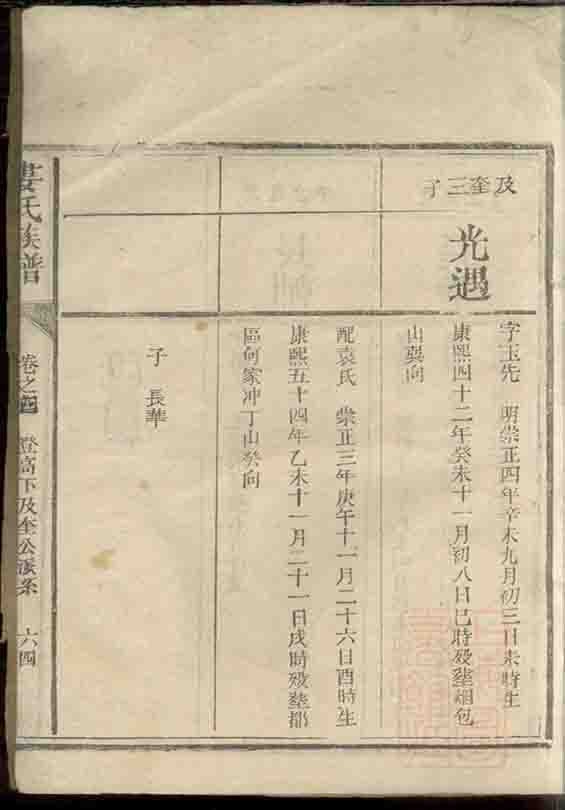 及奎三子
光遇
字玉先 明崇正四年辛未九月初三日未時生
康熙四十二年癸未十一月初八日巳時殁塟烟包
山巽向
配袁氏 崇正三年庚午十一月二十六日酉時生
康熙五十四年乙未十一月二十一日戌時殁塟都
區何家冲丁山癸向
子 長華
氏族譜
卷之四 登高下及奎公派系 六四